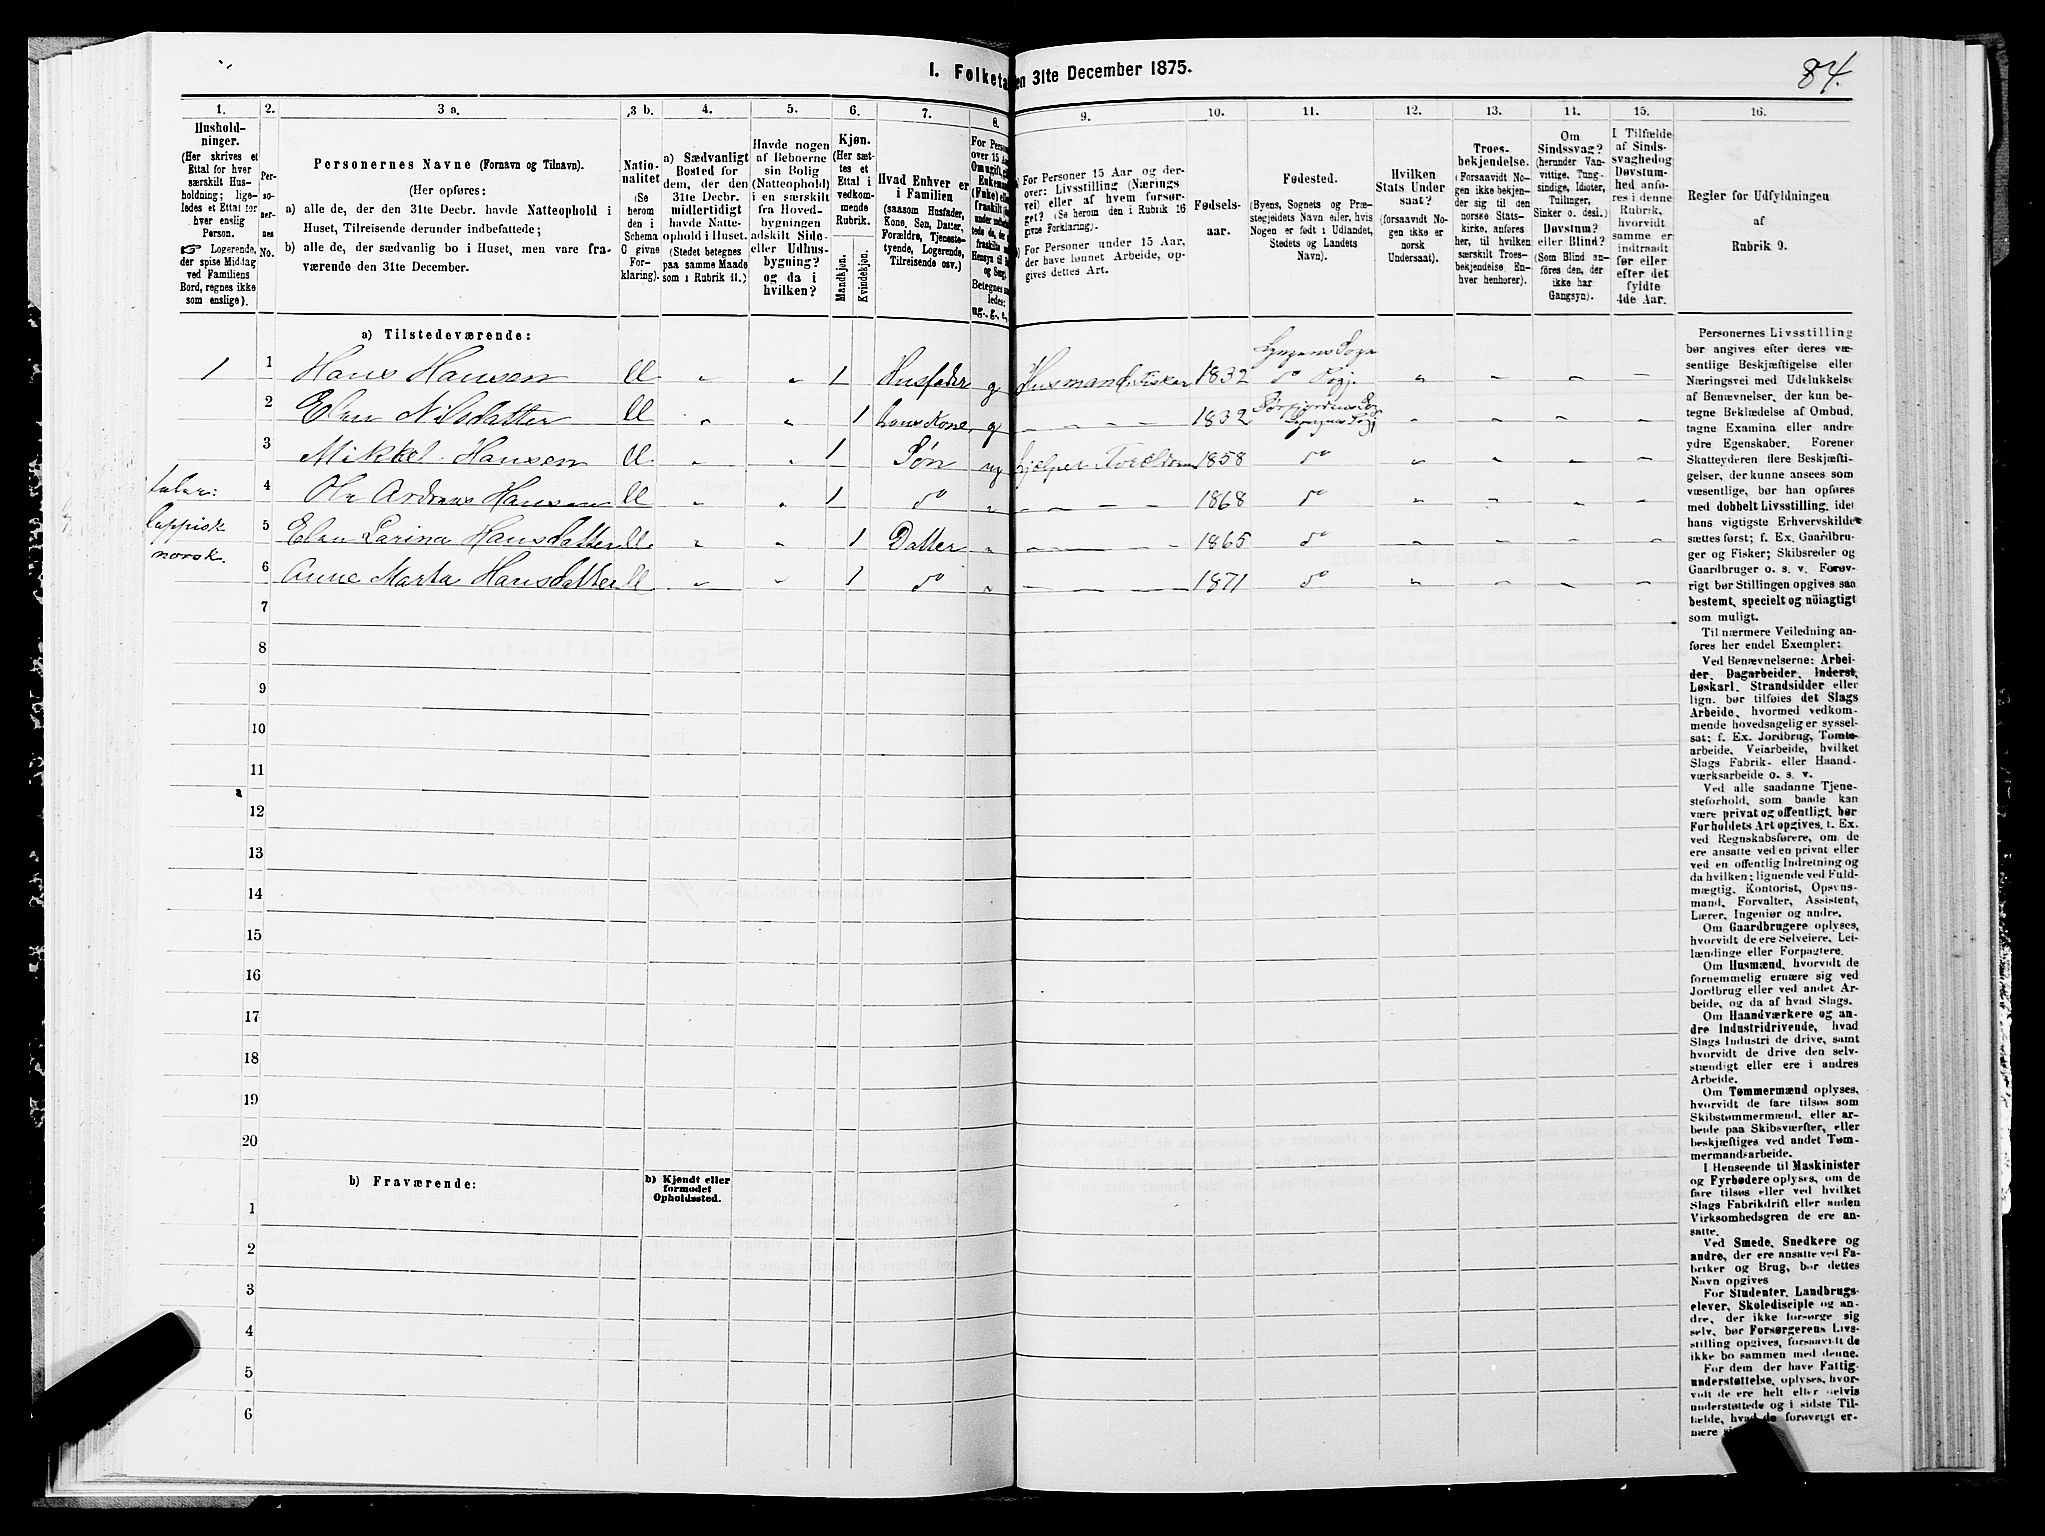 I. Folketa en 31te December 1875.
84.
1.
Hushold-
ninger.
(Her skrives et
Ettal for hver
særskilt Hus-
holdning; lige-
ledes et Ettal for
hver enslig
Person.
☞ Logerende,
der spise Middag
ved Familiens
Bord, regnes ikke
som enslige).
2.
Per-
sono-
ner-
nes
No.
3 a.
Personernes Navne (Fornavn og Tilnavn).
(Her opføres:
a) alle de, der den 31te Decbr. havde Natteophold i
Huset, Tilreisende derunder indbefattede;
b) alle de, der sædvanlig bo i Huset, men vare fra-
værende den 31te December.
3 b.
Natio-
nalitet
(Se
herom
den i
Schema
O givne
For-
klaring).
4.
a) Sædvanligt
Bosted for
dem, der den
31te Decbr.
midlertidigt
havde Natte-
ophold i Huset.
(Stedet betegnes
paa samme Maade
som i Rubrik 11.)
5.
Havde nogen
af Beboerne
sin Bolig
(Natteophold)
i en særskilt
fra Hoved-
bygningen
adskilt Side-
eller Udhus-
bygning?
og da i
hvilken?
6.
Kjøn.
(Her sæt-
tes et
Ettal i
vedkom-
mende
Rubrik.
Mandkjøn.
Kvindekjøn.
7.
Hvad Enhver er
i Familien
(saasom Husfader,
Kone, Søn, Datter,
Forældre, Tjeneste-
tyende, Logerende,
Tilreisende osv.)
8.
For Person
over 15 Aar
Betegnes saa
ledes:
ug., g., e.,
9.
For Personer 15 Aar og der-
over: Livsstilling (Nærings
vei) eller af hvem forsør-
get? (Se herom den i Rubrik 16
givne Forklaring).
b) For Personer under 15 Aar,
der have lønnet Arbeide, op-
gives dettes Art.
10.
Fødsels-
aar.
11.
Fødested.
(Byens, Sognets og Præ-
stegjeldets Navn eller, hvis
Nogen er født i Udlandet,
Stedets og Landets
Navn).
12.
Hvilken
Stats Under
saat?
(forsaavidt No-
gen ikke er
norsk
Undersaat).
13.
Troes-
bekjendelse.
(Forsaavidt No-
gen ikke bekjen-
der sig til den
norske Stats-
kirke, anføres
her, til hvilken
særskilt Troes-
bekjendelse En-
hver henhører).
14.
Om
Sindssvag?
(herunder Van-
vittige, Tung-
sindige, Idioter,
Tullinger,
Sinker o. desl.)
Døvstum?
eller Blind?
(Som Blind an-
føres den, der
ikke har
Gangsyn).
15.
I Tilfælde
af Sinds-
svaghed og
Døvstum-
hed anfø-
res i denne
Rubrik,
hvorvidt
samme er
indtraadt
før eller
efter det
fyldte
4de Aar.
16.
Regler for Udfyldningen
af
Rubrik 9.
a) Tilstedeværende:
1 1 Hans Hansen Husfader g Husmand Fisker 1832 Lyngens Sogn do Pgj.
2 Elen Nilsdatter 1 hans Kone g 1832
3 Mikkel Hansen 1 Søn ug hjelper 1858 do
4 Ole Andreas Hansen 1 do 1868 do
5 Elen Larina Hansdatter 1 Datter 1865 do
6 Anne Marta Hansdatter 1 do 1871 do
taler:
lappisk
norsk.
7
8
9
10
11
12
13
14
15
16
17
18
19
20
b) Fraværende:
b) Kjendt eller
formodet
Opholdssted.
1
2
3
4
5
6
Personernes Livsstilling
bør angives efter deres væ-
sentlige Beskjæftigelse eller
Næringsvei med Udelukkelse
af Benævnelser, der kun be-
tegne Beklædelse af Ombud,
tagne Examina eller andre
ydre Egenskaber. Forener
Skatteyderen flere Beskjæfti-
gelser, der kunne ansees som
væsentlige, bør han opføres
med dobbelt Livsstilling, idet
hans vigtigste Erhvervskilde
sættes først; f. Ex. Gaardbru-
ger og Fisker; Skibsreder og
Gaardbruger o. s. v. Forøv-
rigt bør Stillingen opgives saa
bestemt, specielt og nöiagtigt
som muligt.
Til nærmere Veiledning an-
føres her endel Exempler:
Ved Benævnelserne: Arbei-
der, Dagarbeider, Inderst,
Løskarl, Strandsidder eller
lign. bør tilføies det Slags
Arbeide, hvormed vedkom-
mende hovedsagelig er syssel-
sat; f. Ex. Jordbrug, Tomte-
arbeide, Veiarbeide, hvilket
Slags Fabrik- eller Haand-
værksarbeide o. s. v.
Ved alle saadanne Tjene-
steforhold, som baade kan
være privat og offentligt, bør
Forholdets Art opgives, t. Ex.
ved Regnskabsførere, om de
ere ansatte ved en privat eller
ved en offentlig Indretning og
da hvilken; lignende ved Fuld-
mægtig, Kontorist, Opsyns-
mand, Forvalter, Assistent,
Lærer, Ingeniør og andre.
Om Gaardbrugere oplyses,
hvorvidt de ere Selveiere, Lei-
lændinge eller Forpagtere.
Om Husmænd, hvorvidt de
fornemmelig ernære sig ved
Jordbrug eller ved andet Ar-
beide, og da af hvad Slags.
Om Haandværkere og an-
dre Industridrivende, hvad
Slags Industri de drive, samt
hvorvidt de drive den selv-
stændigt eller ere i andres
Arbeide.
Om Tømmermænd oplyses,
hvorvidt de fare tilsøs som
Skibstømmermænd, eller ar-
beide paa Skibsværfter, eller
beskjæftiges ved andet Tøm-
mermandsarbeide.
I Henseende til Maskinister
og Fyrbødere oplyses, om de
fare tilsøs eller ved hvilket
Slags Fabrikdrift eller anden
Virksomhedsgren de ere an-
satte.
Ved Smede, Snedkere og
andre, der ere ansatte ved Fa-
briker og Brug, bør dettes
Navn opgives
For Studenter, Landbrugs-
elever, Skoledisciple og an-
dre, der ikke forsørge sig
selv, bør Forsørgerens Livs-
stilling opgives, forsaavidt de
ikke bo sammen med denne.
For dem, der have Fattig-
understøttelse, oplyses, hvor-
vidt de ere helt eller delvis
understøttede og i sidste Til-
fælde, hvad de forøvrigt er-
nære